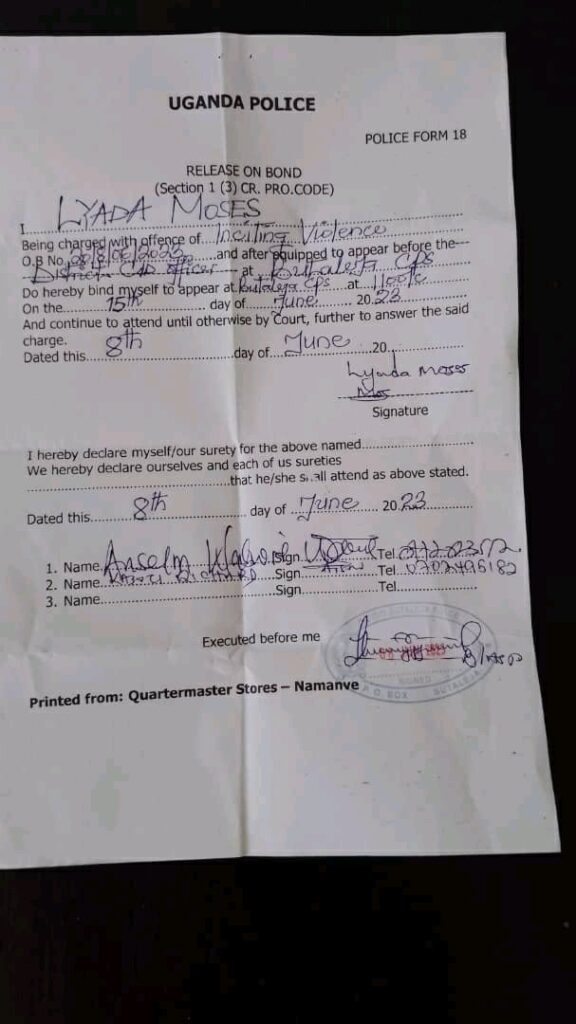 UGANDA POLICE
POLICE FORM 18
RELEASE ON BOND
(Section 1 (3) CR. PRO.CODE)
I LYADA MOSES
Being charged with offence of Inciting Violence
O.B No. /06/2023 and after equipped to appear before the---
District CID officer at Butaleja CPS
Do hereby bind myself to appear at Butaleja CPS at 1100
On the 15th day of June 2023
And continue to attend until otherwise by Court, further to answer the said
charge.
Dated this 8th day of June 20
Lyada Moses
Mos
Signature
I hereby declare myself/our surety for the above named
We hereby declare ourselves and each of us sureties
that he/she shall attend as above stated.
Dated this 8th day of June 2023
1. Name Anselm Sign Tel
2. Name RICHARD Sign Tel 0702496182
3. Name Sign Tel
Executed before me
P.O. BOX BUTALEJA
Printed from: Quartermaster Stores – Namanve